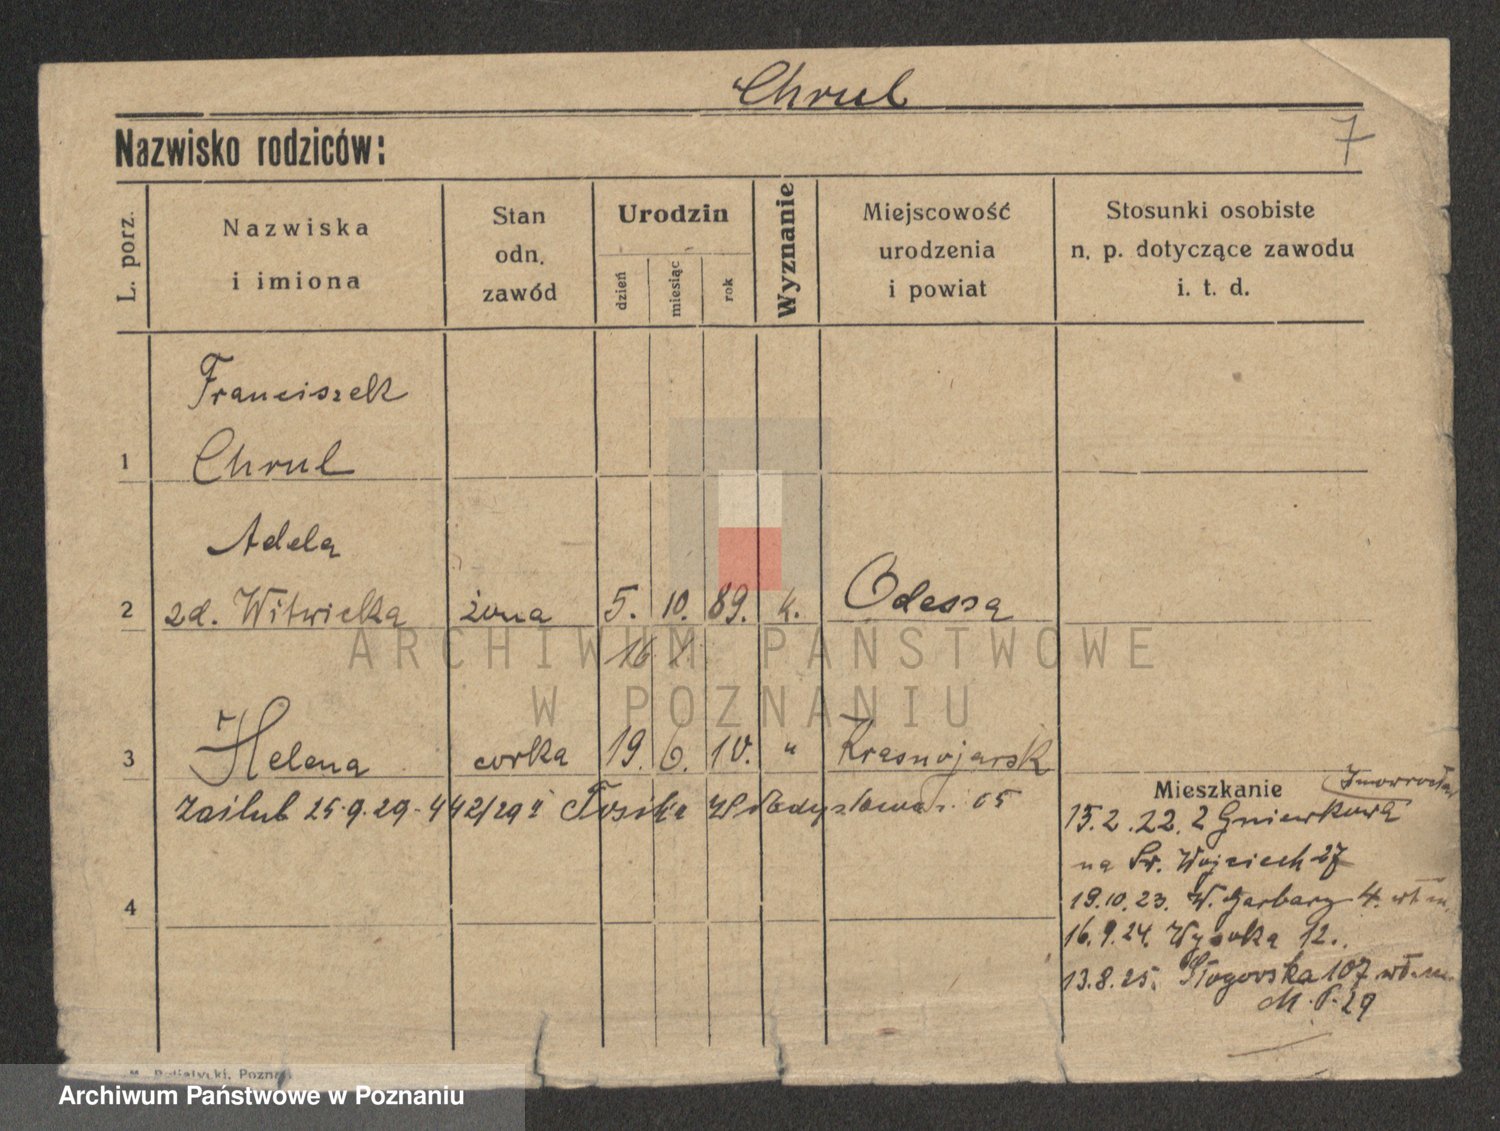 Chrul
Nazwisko rodziców:
7
L. porz.
Nazwiska
i imiona
Stan
odn.
zawód
Urodzin
dzień
miesiąc
rok
Wyznanie
Miejscowość
urodzenia
i powiat
Stosunki osobiste
n. p. dotyczące zawodu
i. t. d.
Franciszek
1 Chrul
Adela
2 zd. Witwicka żona 5. 10. 89. k. Odessa
16
3 Helena corka 19. 6. 10. " Krasnojarsk
Zaślub 25.9.29 442/29 Władysława 05
Mieszkanie
15.2.22. z Gniewkowa
na Św. Wojciech 27
19.10.23. W. Garbary 4.
16.9.24. Wysoka 12.
13.8.25. 107
29
4
Poznań
ARCHIWUM PAŃSTWOWE
W POZNANIU
Archiwum Państwowe w Poznaniu